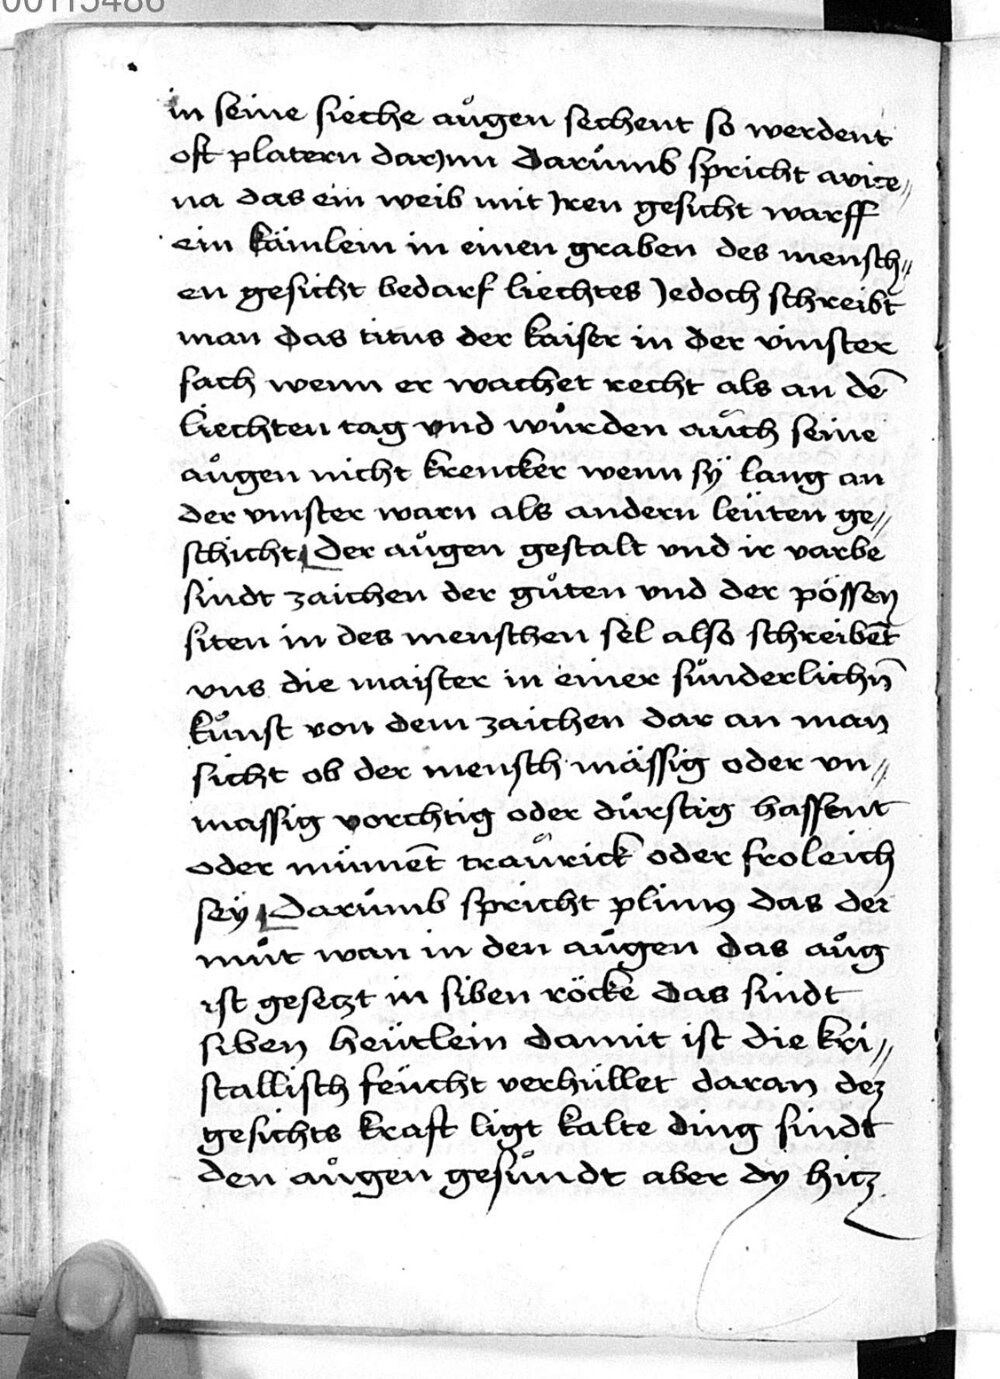 00115486
in seine sieche aůgen sechent so werdent
oft platern darJnn Darůmb spricht avice„
na das ein weib mit Jren gesicht warff
ein kämlein in einen graben des mensch„
en gesicht bedarf liechtes Jedoch schreibt
man das titus der kaiser in der vinster
sach wenn er wachet recht als an dē
liechten tag vnd wůrden aůch seine
aůgen nicht krencker wenn sÿ lang an
der vinster warn als andern leüten ge„
schicht Der aůgen gestalt vnd ir varbe
sindt zaichen der gůten vnd der pössen
siten in des menschen sel also schreibēt
vns die maister in einer sůnderlichn̄
kůnst von dem zaichen dar an man
sicht ob der mensch mässig oder vn„
massig vorchtig oder důrstig hassent
oder minnēt traůrick oder froleich
seÿ Darůmb spricht plinius das der
můt wan in den aůgen das aůg
ist gesetzt in siben röcke das sindt
siben heütlein damit ist die kri„
stallisch feücht verhüllet daran dez
gesichts kraft ligt kalte ding sindt
den aůgen gesůndt aber dy hitz